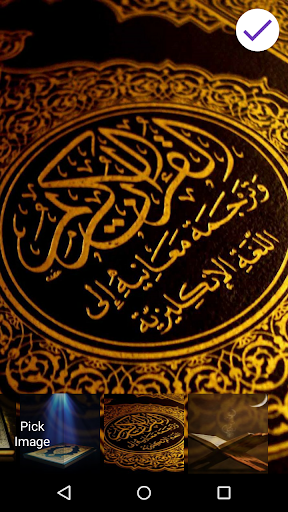 القرآن الكريم
وَتَرجَمَة مَعَانِيهِ إِلى
اللغَةِ الإنكليزيَّة
Pick
Image